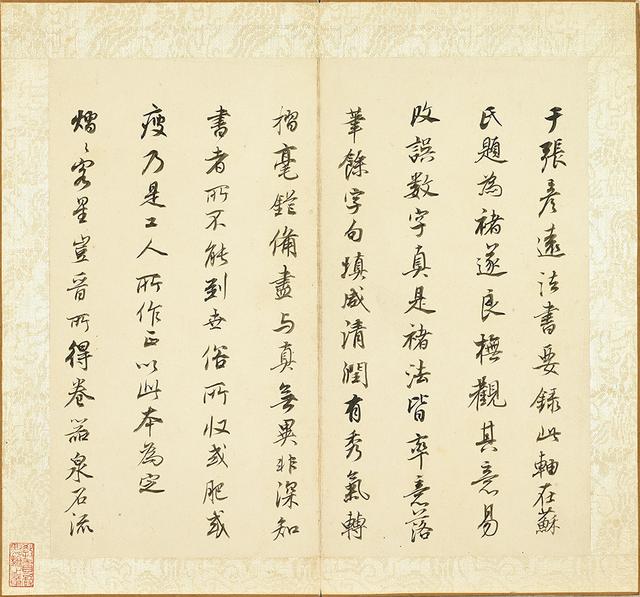 于張彥遠法書要錄此軸在蘇
氏題為褚遂良橅觀其意易
改誤數字真是褚法皆率意落
筆餘字勾填咸清潤有秀氣轉
摺毫鋩備盡与真無異非深知
書者所不能到世俗所收或肥或
瘦乃是工人所作正以此本為定
熠〻客星豈晉所得卷器泉石流